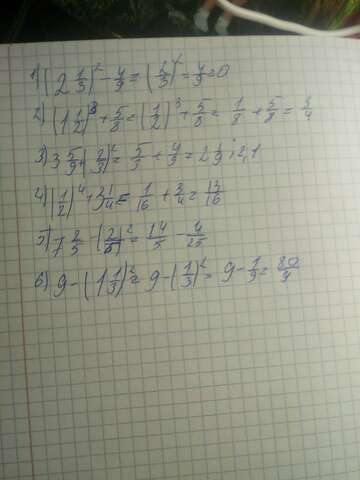 1) (2 1/3)^2 - 4/9 = (2/3)^2 = 4/9 = 0
2) (1 1/2)^3 + 5/8 = (1/2)^3 + 5/8 = 1/8 + 5/8 = 3/4
3) 3 5/9 + (2/3)^2 = 5/9 + 4/9 = 2 1/9 ≈ 2,1
4) (1/2)^4 + 3 1/4 = 1/16 + 3/4 = 13/16
5) 7 2/5 - (2/5)^2 = 14/5 - 4/25
6) 9 - (1 1/3)^2 = 9 - (1/3)^2 = 9 - 1/9 = 80/9